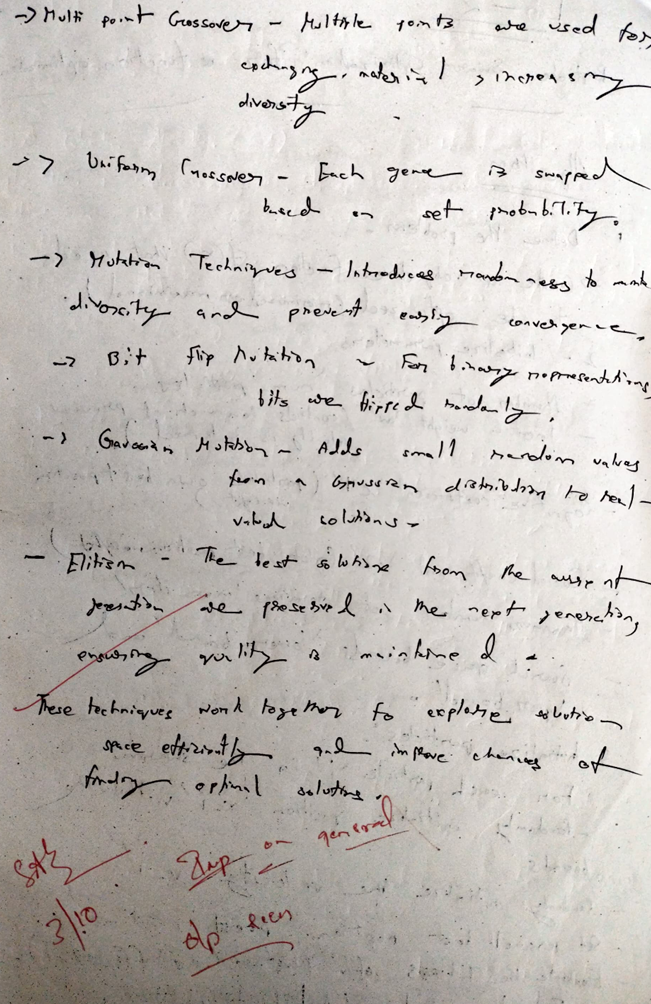 -> Multi point Crossover - Multiple points are used for
exchanging material, increasing
diversity
-> Uniform Crossover - Each gene is swapped
based on set probability.
-> Mutation Techniques - Introduces randomness to
diversity and prevent convergence.
-> Bit flip Mutation - For binary representations,
bits are flipped randomly.
-> Gaussian Mutation - Adds small random values
from a Gaussian distribution to real-
valued solutions.
- Elitism - The best solutions from the current
generation are preserved in the next generation,
ensuring quality is maintained.
These techniques work together to explore solution
space efficiently and improve chances of
finding optimal solutions.
on general
3/10